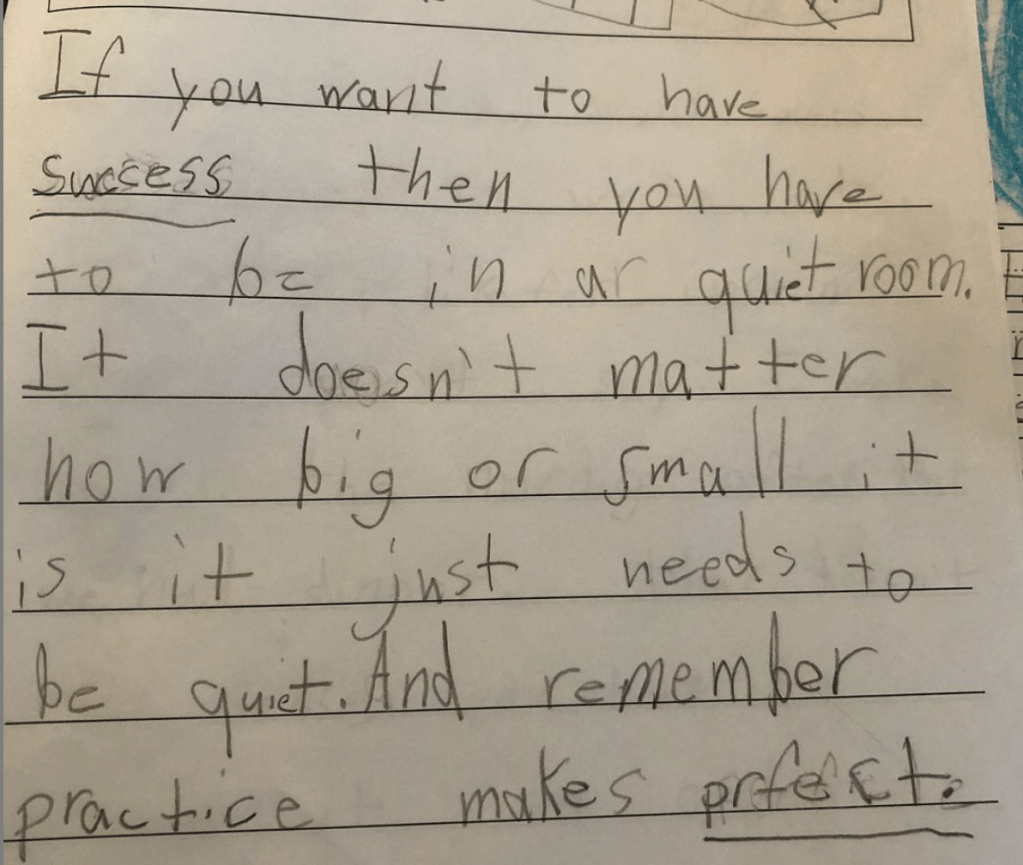 If you want to have
success then you have
to be in ar quiet room.
It doesn't matter
how big or small it
is it just needs to
be quiet. And remember
practice makes prfect.